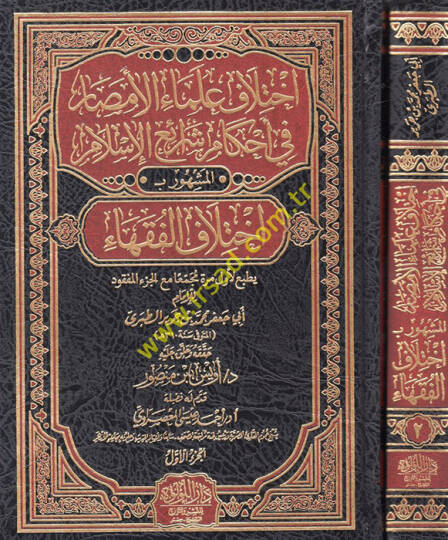 اختلاف علماء الأمصار
في أحكام شرائع الإسلام
المشهور بـ
اختلاف الفقهاء
يطبع لأول مرة مجتمعا مع الجزء المفقود
للإمام
أبي جعفر محمد بن جرير الطبري
المتوفى سنة
حققه وعلق عليه
د/ أويس منصور
قدم له فضيلة
أ.د/ أحمد عيسى المعصراوي
الجزء الأول
www.irsad.com.tr
أبي جعفر محمد بن جرير
الطبري
اختلاف علماء الأمصار
في أحكام شرائع الإسلام
المشهور بـ
اختلاف
الفقهاء
٢